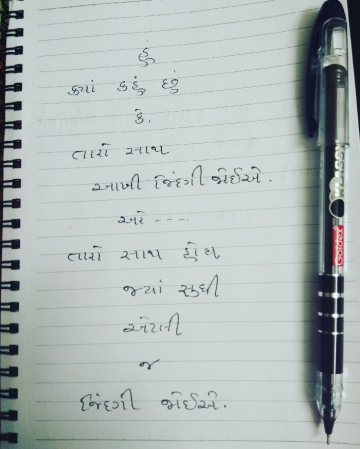 હું
ક્યાં કહું છું
કે.
તારો સાથ
આખી જિંદગી જોઈએ.
અરે ----
તારો સાથ હોય
જ્યાં સુધી
એટલી
જ
જિંદગી જોઈએ.
Goldex